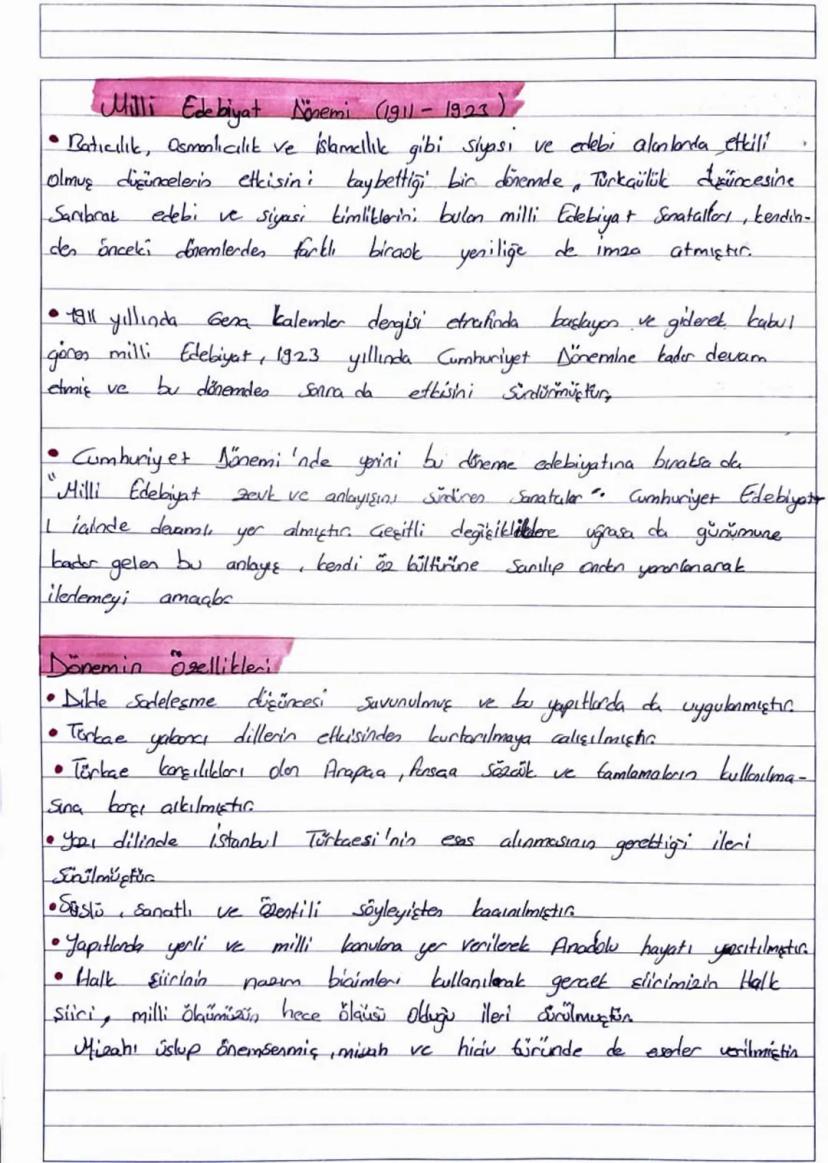 Milli Edebiyat Dönemi (1911 - 1923)
• Batıcılık, Osmanlıcılık ve İslamcılık gibi siyasi ve edebi alanlarda etkili
olmuş düşüncelerin etkisini kaybettiği bir dönemde, Türkçülük düşüncesine
Sarılarak edebi ve siyasi kimliklerini bulan milli Edebiyat Sanatçıları, kendin-
den önceki dönemlerden farklı birçok yeniliğe de imza atmıştır.
• 1911 yıllında Genç Kalemler dergisi etrafında başlayan ve giderek kabul
gören milli Edebiyat, 1923 yıllında Cumhuriyet Dönemine kadar devam
etmiş ve bu dönemden sonra da etkisini sürdürmüştür,
• Cumhuriyet Dönemi'nde yerini bu döneme edebiyatına bıraksa da
"Milli Edebiyat zevk ve anlayışını sürdüren Sanatçılar" Cumhuriyet Edebiyat
ı içinde devamlı yer almıştır. Çeşitli değişikliklere uğrasa da günümüne
kadar gelen bu anlayış, kendi öz kültürüne Sarılıp ondan yararlanarak
ilerlemeyi amaçlar
Dönemin Özellikleri
• Dilde Sadeleşme düşüncesi savunulmuş ve bu yapıtlarda da uygulanmıştır.
• Türkçe yabancı dillerin etkisinden kurtarılmaya çalışılmıştır.
• Türkçe karşılıkları olan Arapça, Farsça sözcük ve tamlamaların kullanılma-
sına karşı çıkılmıştır.
• Yazı dilinde İstanbul Türkçesi'nin esas alınmasının gerektiği ileri
Sürülmüştür.
• Süslü, sanatlı ve özentili söyleyişten kaçınılmıştır.
• Yapıtlarda yerli ve milli konulara yer verilerek Anadolu hayatı yansıtılmıştır.
• Halk şiirinin nazım biçimleri kullanılarak gerçek şiirimizin Halk
şiiri, milli ölçümüzün hece ölçüsü olduğu ileri sürülmüştür.
Mizahı üslup önemsenmiş, mizah ve hiciv türünde de eserler verilmiştir